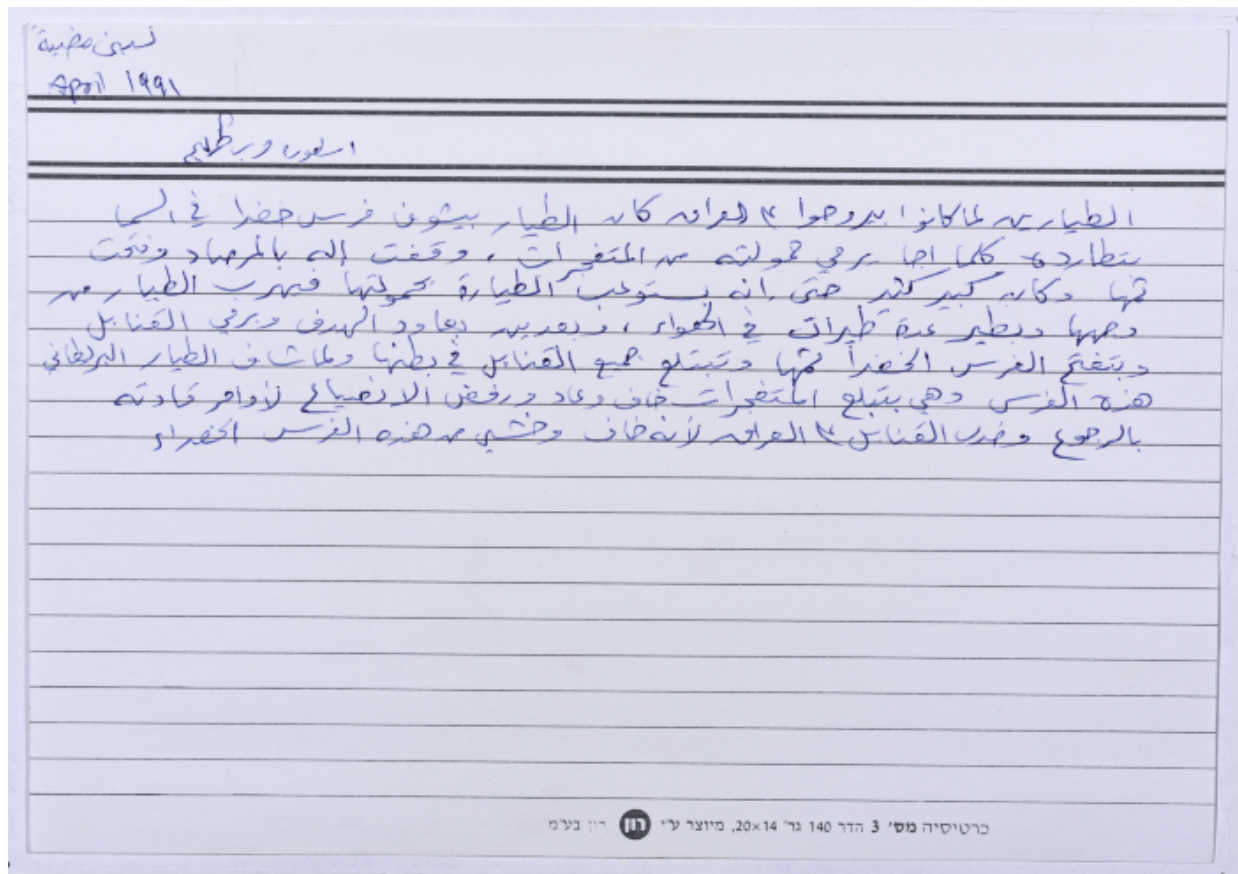 April 1991
الطيارين لما كانوا بيروحوا ع العراق كان الطيار بيشوف فرس خضرا في السما
بتطارده كلما اجا يرمي حمولته من المتفجرات، وقفت إله بالمرصاد وفتحت
تمها وكان كبير كثير حتى انه يستوعب الطيارة بحمولتها فيهرب الطيار من
وجهها وبطير عدة طيرات في الهواء، وبعدين يعاود الهدف ويرمي القنابل
وبتفتح الفرس الخضراً تمها وتبتلع جميع القنابل في بطنها ولما شاف الطيار البريطاني
هذه الفرس وهي بتبلع المتفجرات خاف وعاد ورفض الانصياع لأوامر قادته
بالرجوع وضرب القنابل ع العراق لأنه خاف وخشي من هذه الفرس الخضراء
כרטיסיה מס׳ 3 הדר 140 גר׳ 20×14, מיוצר ע״י רון רון בע״מ